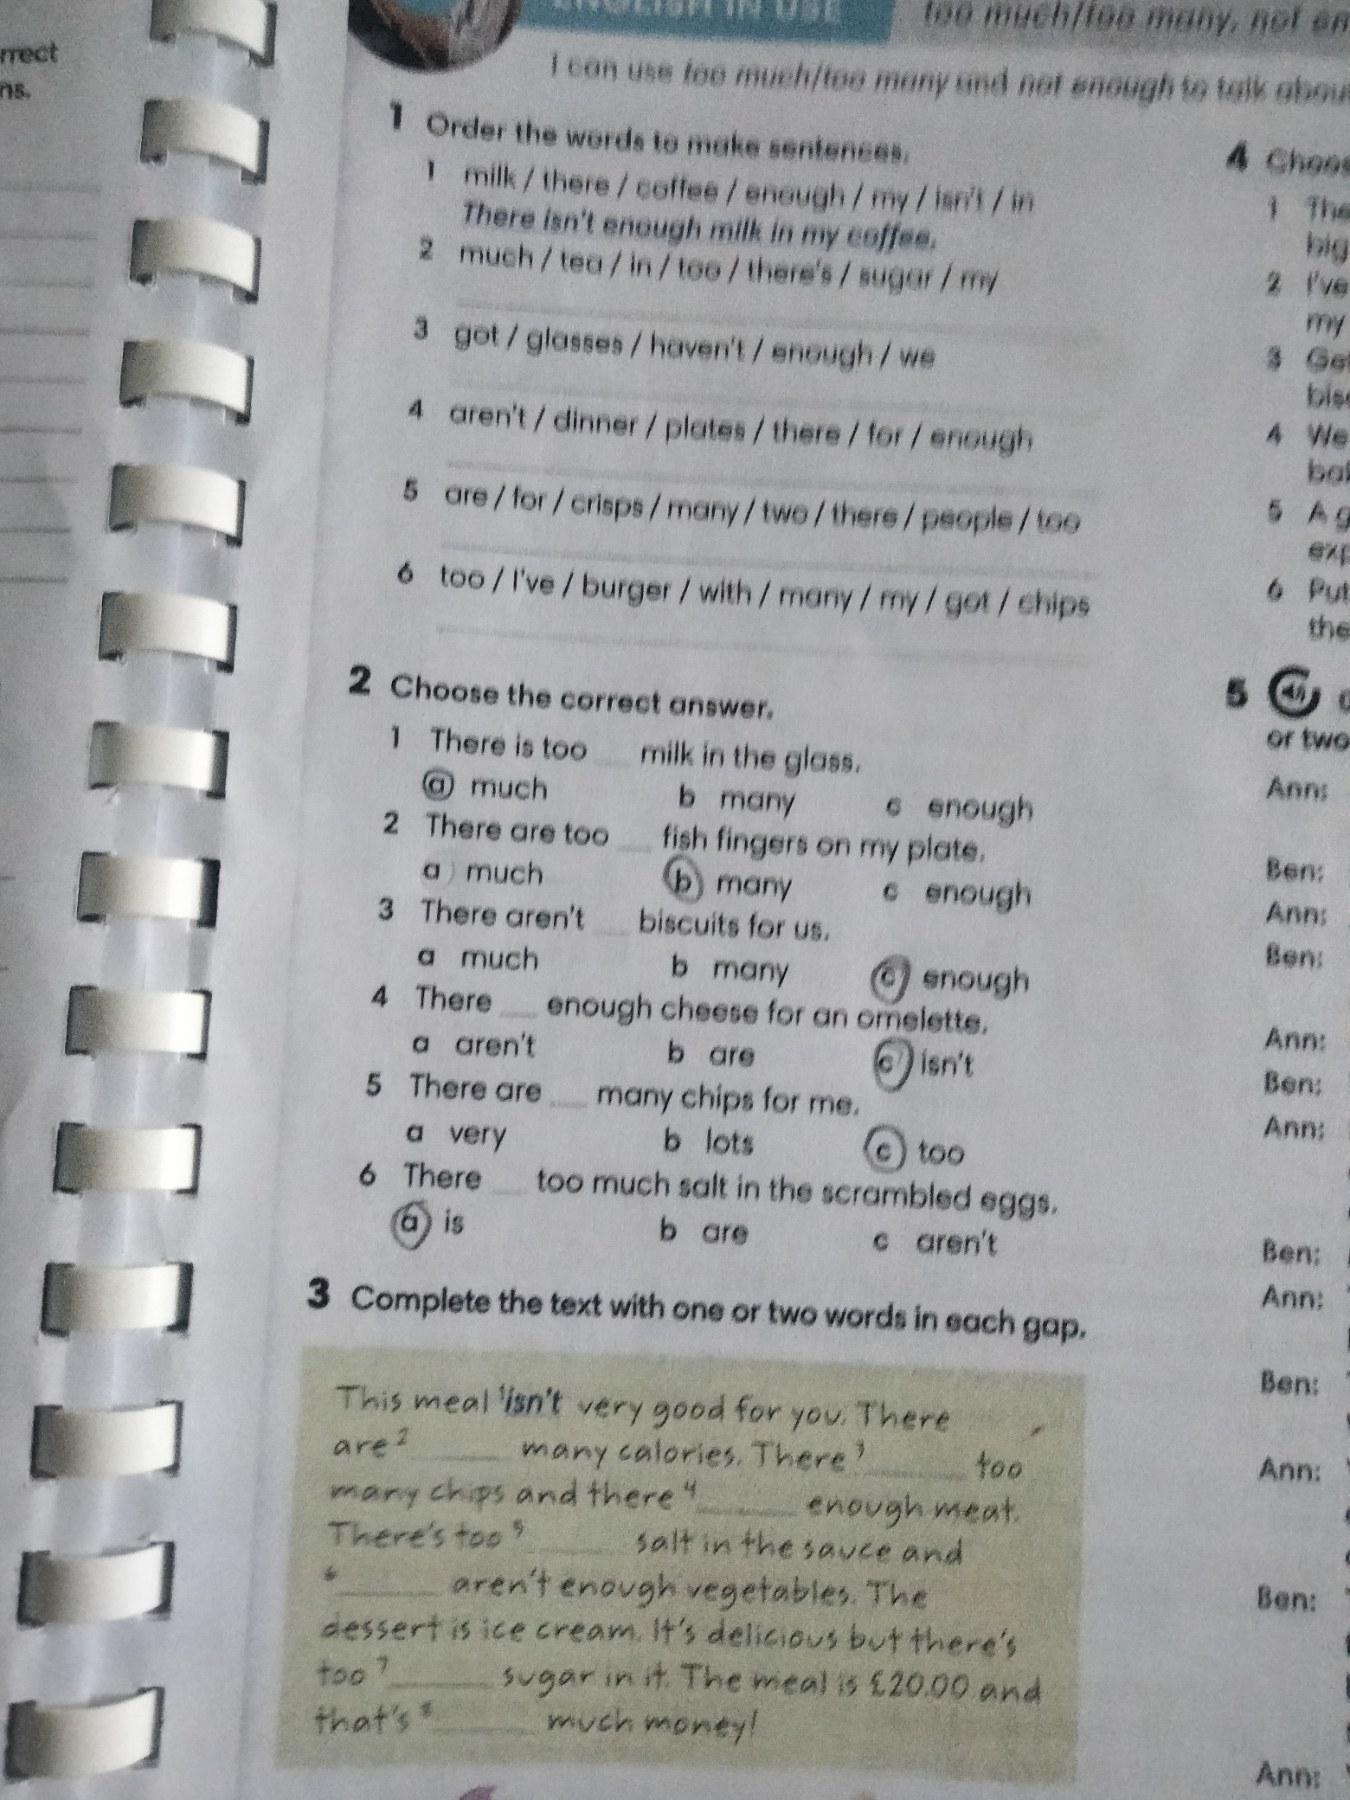 rrect
ns.
ENGLISH IN USE
too much/too many, not en
I can use too much/too many and not enough to talk abou
1 Order the words to make sentences.
1 milk / there / coffee / enough / my / isn't / in
There isn't enough milk in my coffee.
2 much / tea / in / too / there's / sugar / my
3 got / glasses / haven't / enough / we
4 aren't / dinner / plates / there / for / enough
5 are / for / crisps / many / two / there / people / too
6 too / I've / burger / with / many / my / got / chips
2 Choose the correct answer.
1 There is too ___ milk in the glass.
a much b many c enough
2 There are too ___ fish fingers on my plate.
a much b many c enough
3 There aren't ___ biscuits for us.
a much b many c enough
4 There ___ enough cheese for an omelette.
a aren't b are c isn't
5 There are ___ many chips for me.
a very b lots c too
6 There ___ too much salt in the scrambled eggs.
a is b are c aren't
3 Complete the text with one or two words in each gap.
This meal ¹isn't very good for you. There
are ² ______ many calories. There ³ ______ too
many chips and there ⁴ ______ enough meat.
There's too ⁵ ______ salt in the sauce and
⁶ ______ aren't enough vegetables. The
dessert is ice cream. It's delicious but there's
too ⁷ ______ sugar in it. The meal is £20.00 and
that's ⁸ ______ much money!
4 Choos
1 The
big
2 I've
my
3 Ge
bis
4 We
ba
5 A g
exp
6 Put
the
5
or two
Ann:
Ben:
Ann:
Ben:
Ann:
Ben:
Ann:
Ben:
Ann:
Ben:
Ann:
Ben:
Ann: